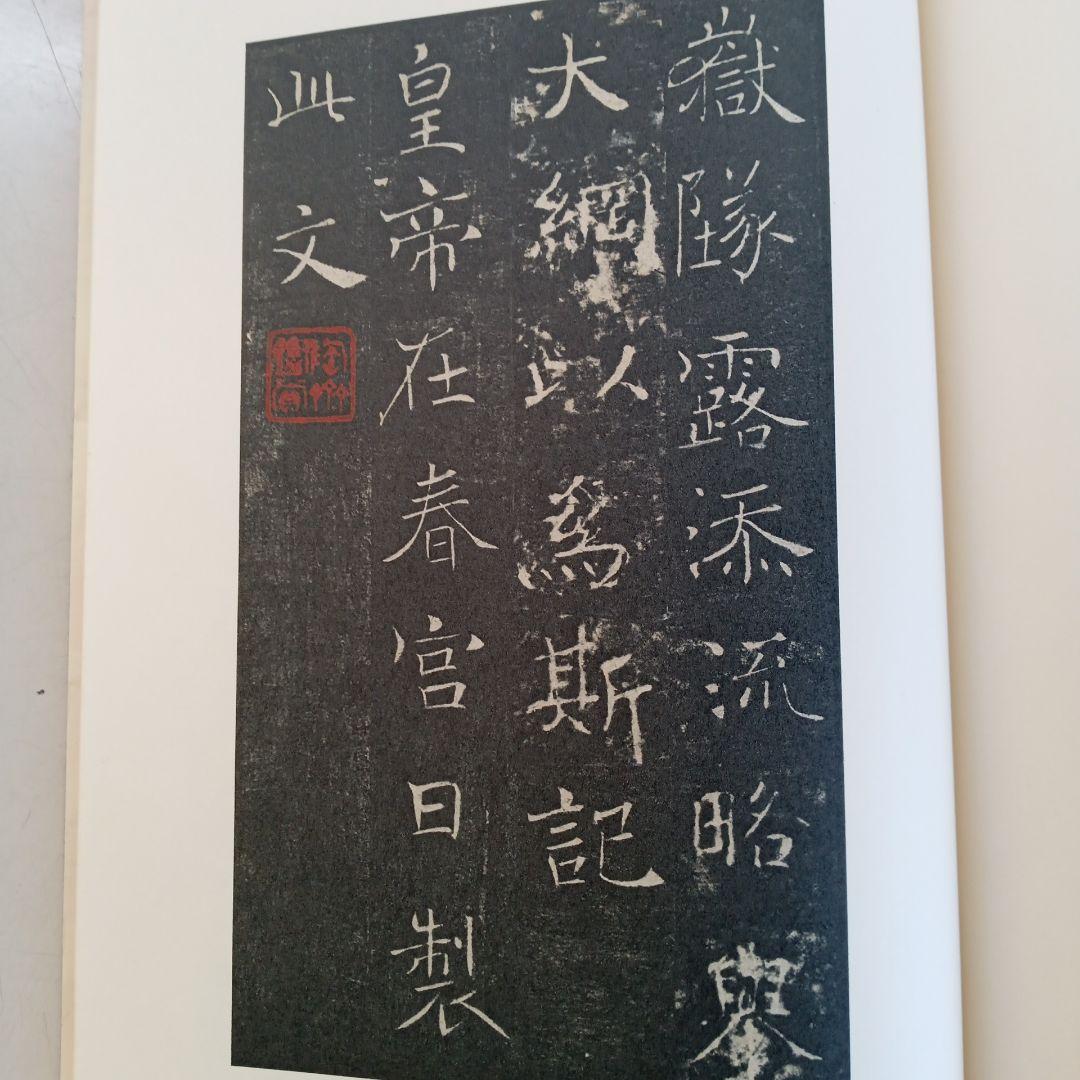 嶽墜露添流略舉
大綱以為斯記
皇帝在春宮日製
此文